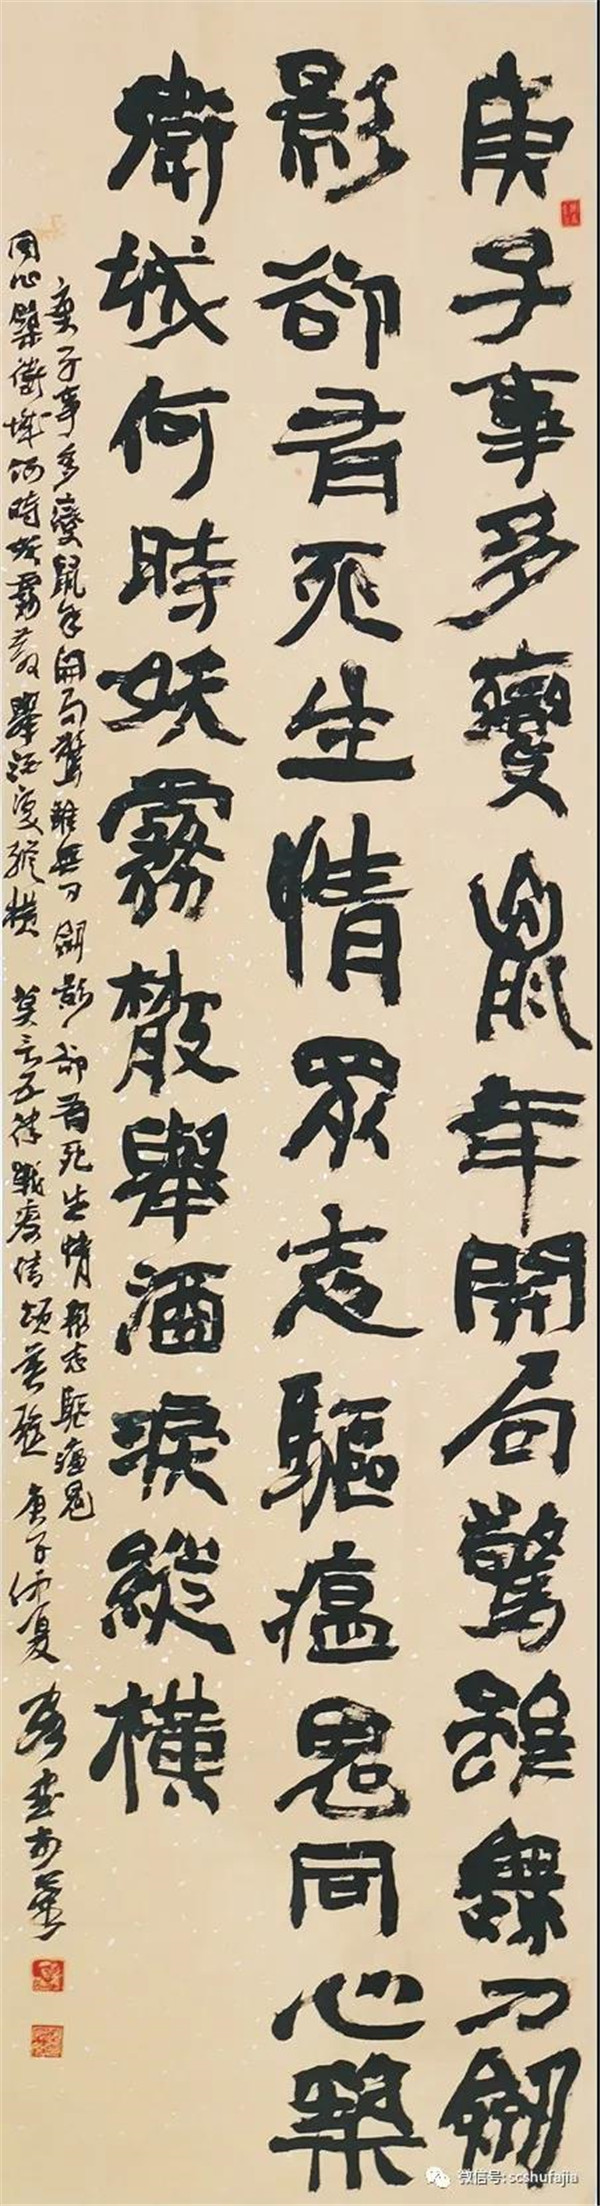 庚子事多變鼠年開局驚雖無刀劍
影卻有死生情眾志驅瘟鬼同心築
衛城何時妖霧散舉酒淚縱橫
庚子事多變鼠年開局驚雖無刀劍影卻有死生情眾志驅瘟鬼
同心築衛城何時妖霧散舉酒淚縱橫 莫言五律戰疫情 庚子仲夏
微信号: scshufajia